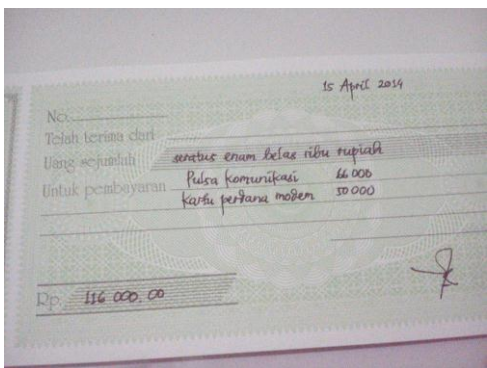 15 April 2014
No.
Telah terima dari
Uang sejumlah seratus enam belas ribu rupiah
Untuk pembayaran Pulsa komunikasi 66 000
kartu perdana modem 50 000
Rp. 116 000, 00